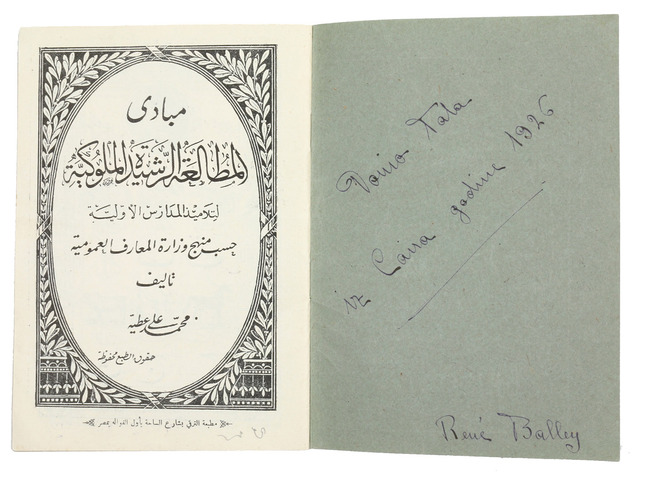 مبادئ
المطالعة الرشيدة الملوكية
لتلاميذ المدارس الأولية
حسب منهج وزارة المعارف العمومية
تأليف
محمد على عطية
حقوق الطبع محفوظة
مطبعة الترقي بشارع الساحة بأول الفواله بمصر
Doniso Tata
iz Caira godine 1926
René Balley